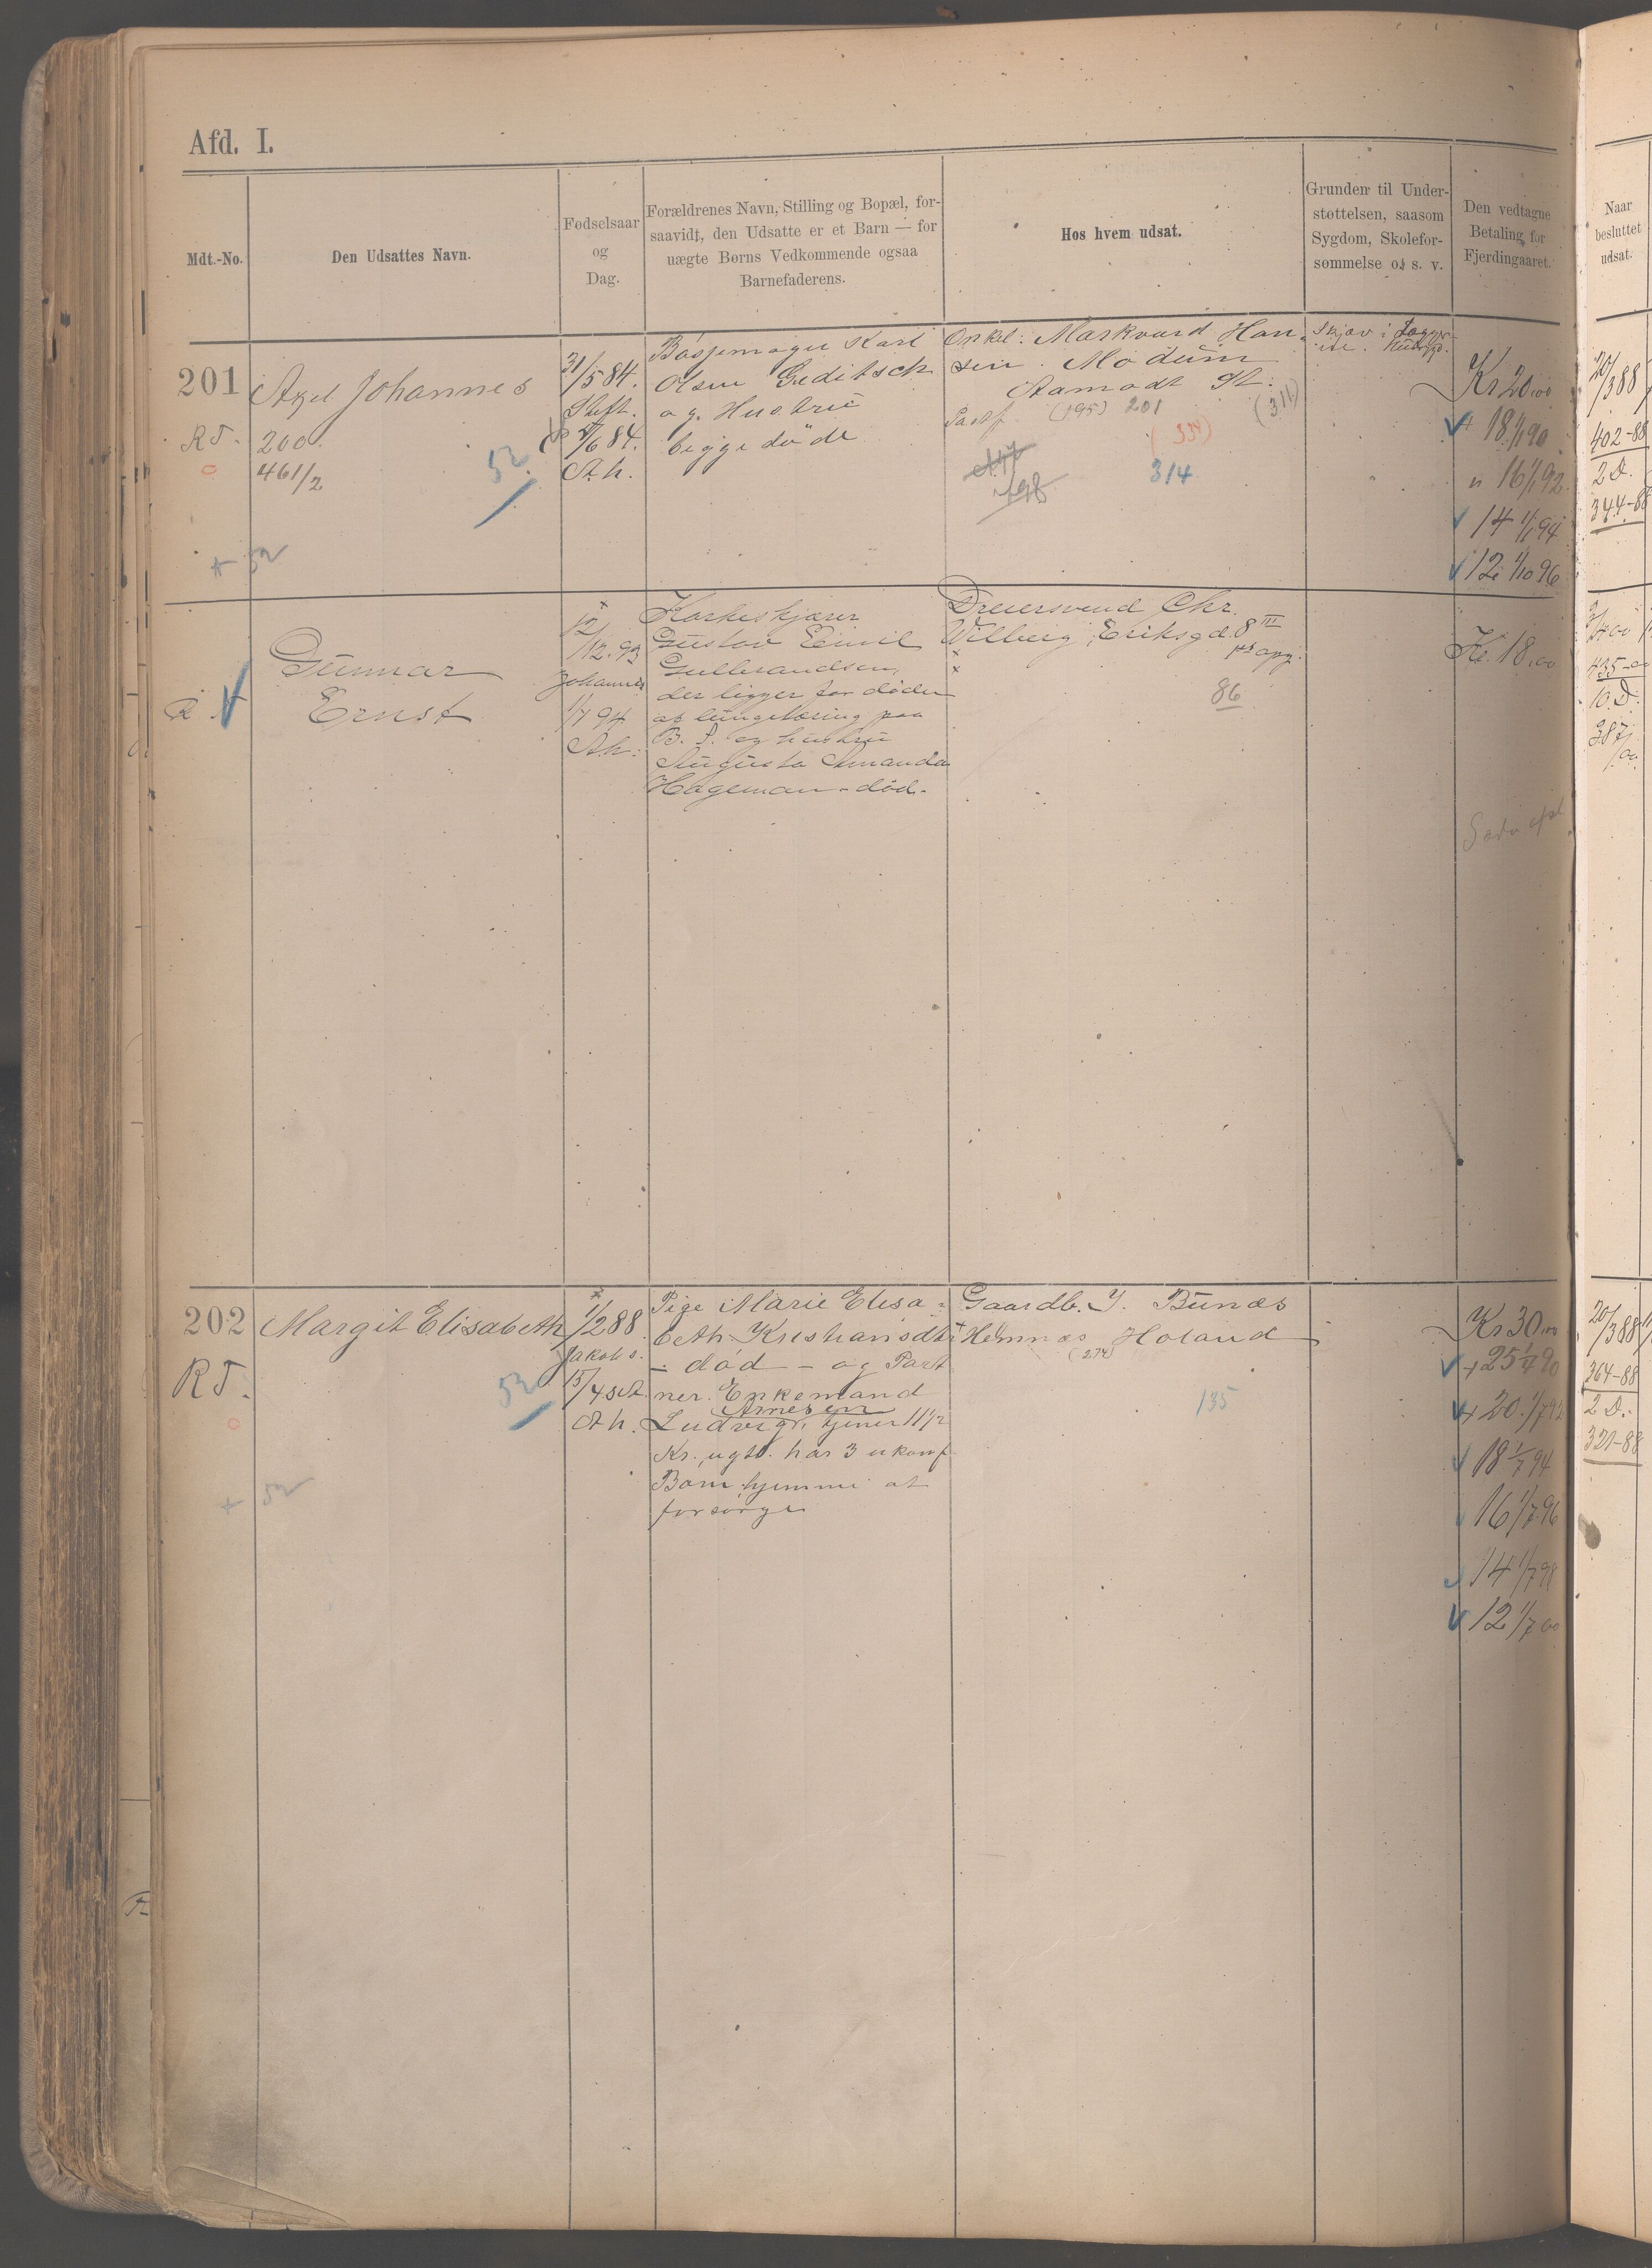 Afd. I.
Mdt.-No.
Den Udsattes Navn.
Fødselsaar
og
Dag.
Forældrenes Navn, Stilling og Bopæl, for-
saavidt, den Udsatte er et Barn — for
uægte Børns Vedkommende ogsaa
Barnefaderens.
Hos hvem udsat.
Grunden til Under-
støttelsen, saasom
Sygdom, Skolefor-
sømmelse o. s. v.
Den vedtagne
Betaling for
Fjerdingaaret.
Naar
besluttet
udsat.
201
R T.
Axel Johannes
200.
461/2
52
52
31/5 84.
/6 84.
A.h.
Karl
Olsen Geditsch
og Hustru
begge døde
Onkel: Markvard Han-
sen. Modum
Aamodt St.
(195) 201
(311)
(334)
198
314
Kr 20,00
18 1/1 90
" 16 1/1 92
14 1/1 94
12 1/10 96
20/3 88
402-88
2 D.
344-88
Gunnar
Ernst
12/12.93
Johannes
1/7 94
A.h.
Gustav Emil
Gulbrandsen,
der ligger for døden
af lungetæring paa
B. S. og hustru
Augusta Amanda
Hageman - død.
Dreiersvend Chr.
Wilberg, Eriksgd. 8 III
opg.
86
Kr. 18,00
435-00
10. D.
387/00
202
R T.
Margit Elisabeth
52
52
1/2 88
Jakobs.
15/4
A h.
Pige Marie Elisa-
beth Kristiansdtr
- død - og Part
ner. Enkemand
Arnesen
Ludvig, tjener 11 1/2
Kr. ugtl. har 3 ukonf.
Børn hjemme at
forsørge
Gaardb. J. Bunæs
Hemnæs Høland
(274)
135
Kr 30,00
25 1/7 90
20 1/7 92
18 1/7 94
16 1/7 96
14 1/7 98
12 1/7 00
20/3 88
364-88
2 D.
321-88